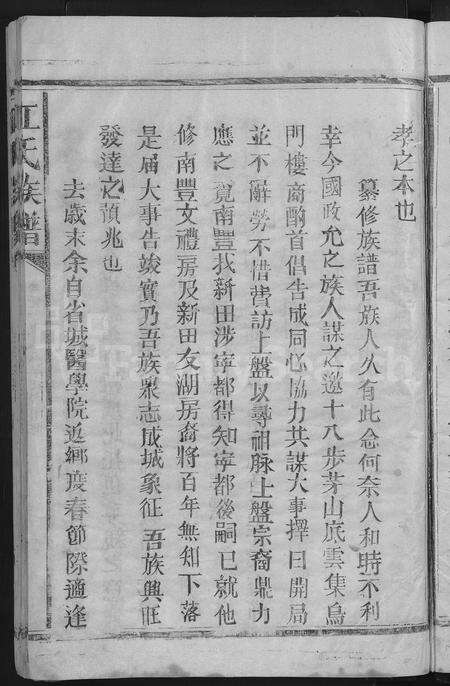 孝之本也
纂修族譜吾族人久有此念何奈人和時不利
幸今國政允之族人謀之邀十八步茅山底雲集烏
門樓商酌首倡告成同心協力共謀大事擇日開局
並不辭勞不惜費訪上盤以尋祖脉上盤宗裔鼎力
應之覓南豐找新田涉寧都得知寧都後嗣已就他
修南豐文禮房及新田友湖房裔將百年無知下落
是届大事告竣實乃吾族衆志成城象征吾族興旺
發達之預兆也
去歲末余自省城醫學院返鄉度春節際適逢
江氏族譜